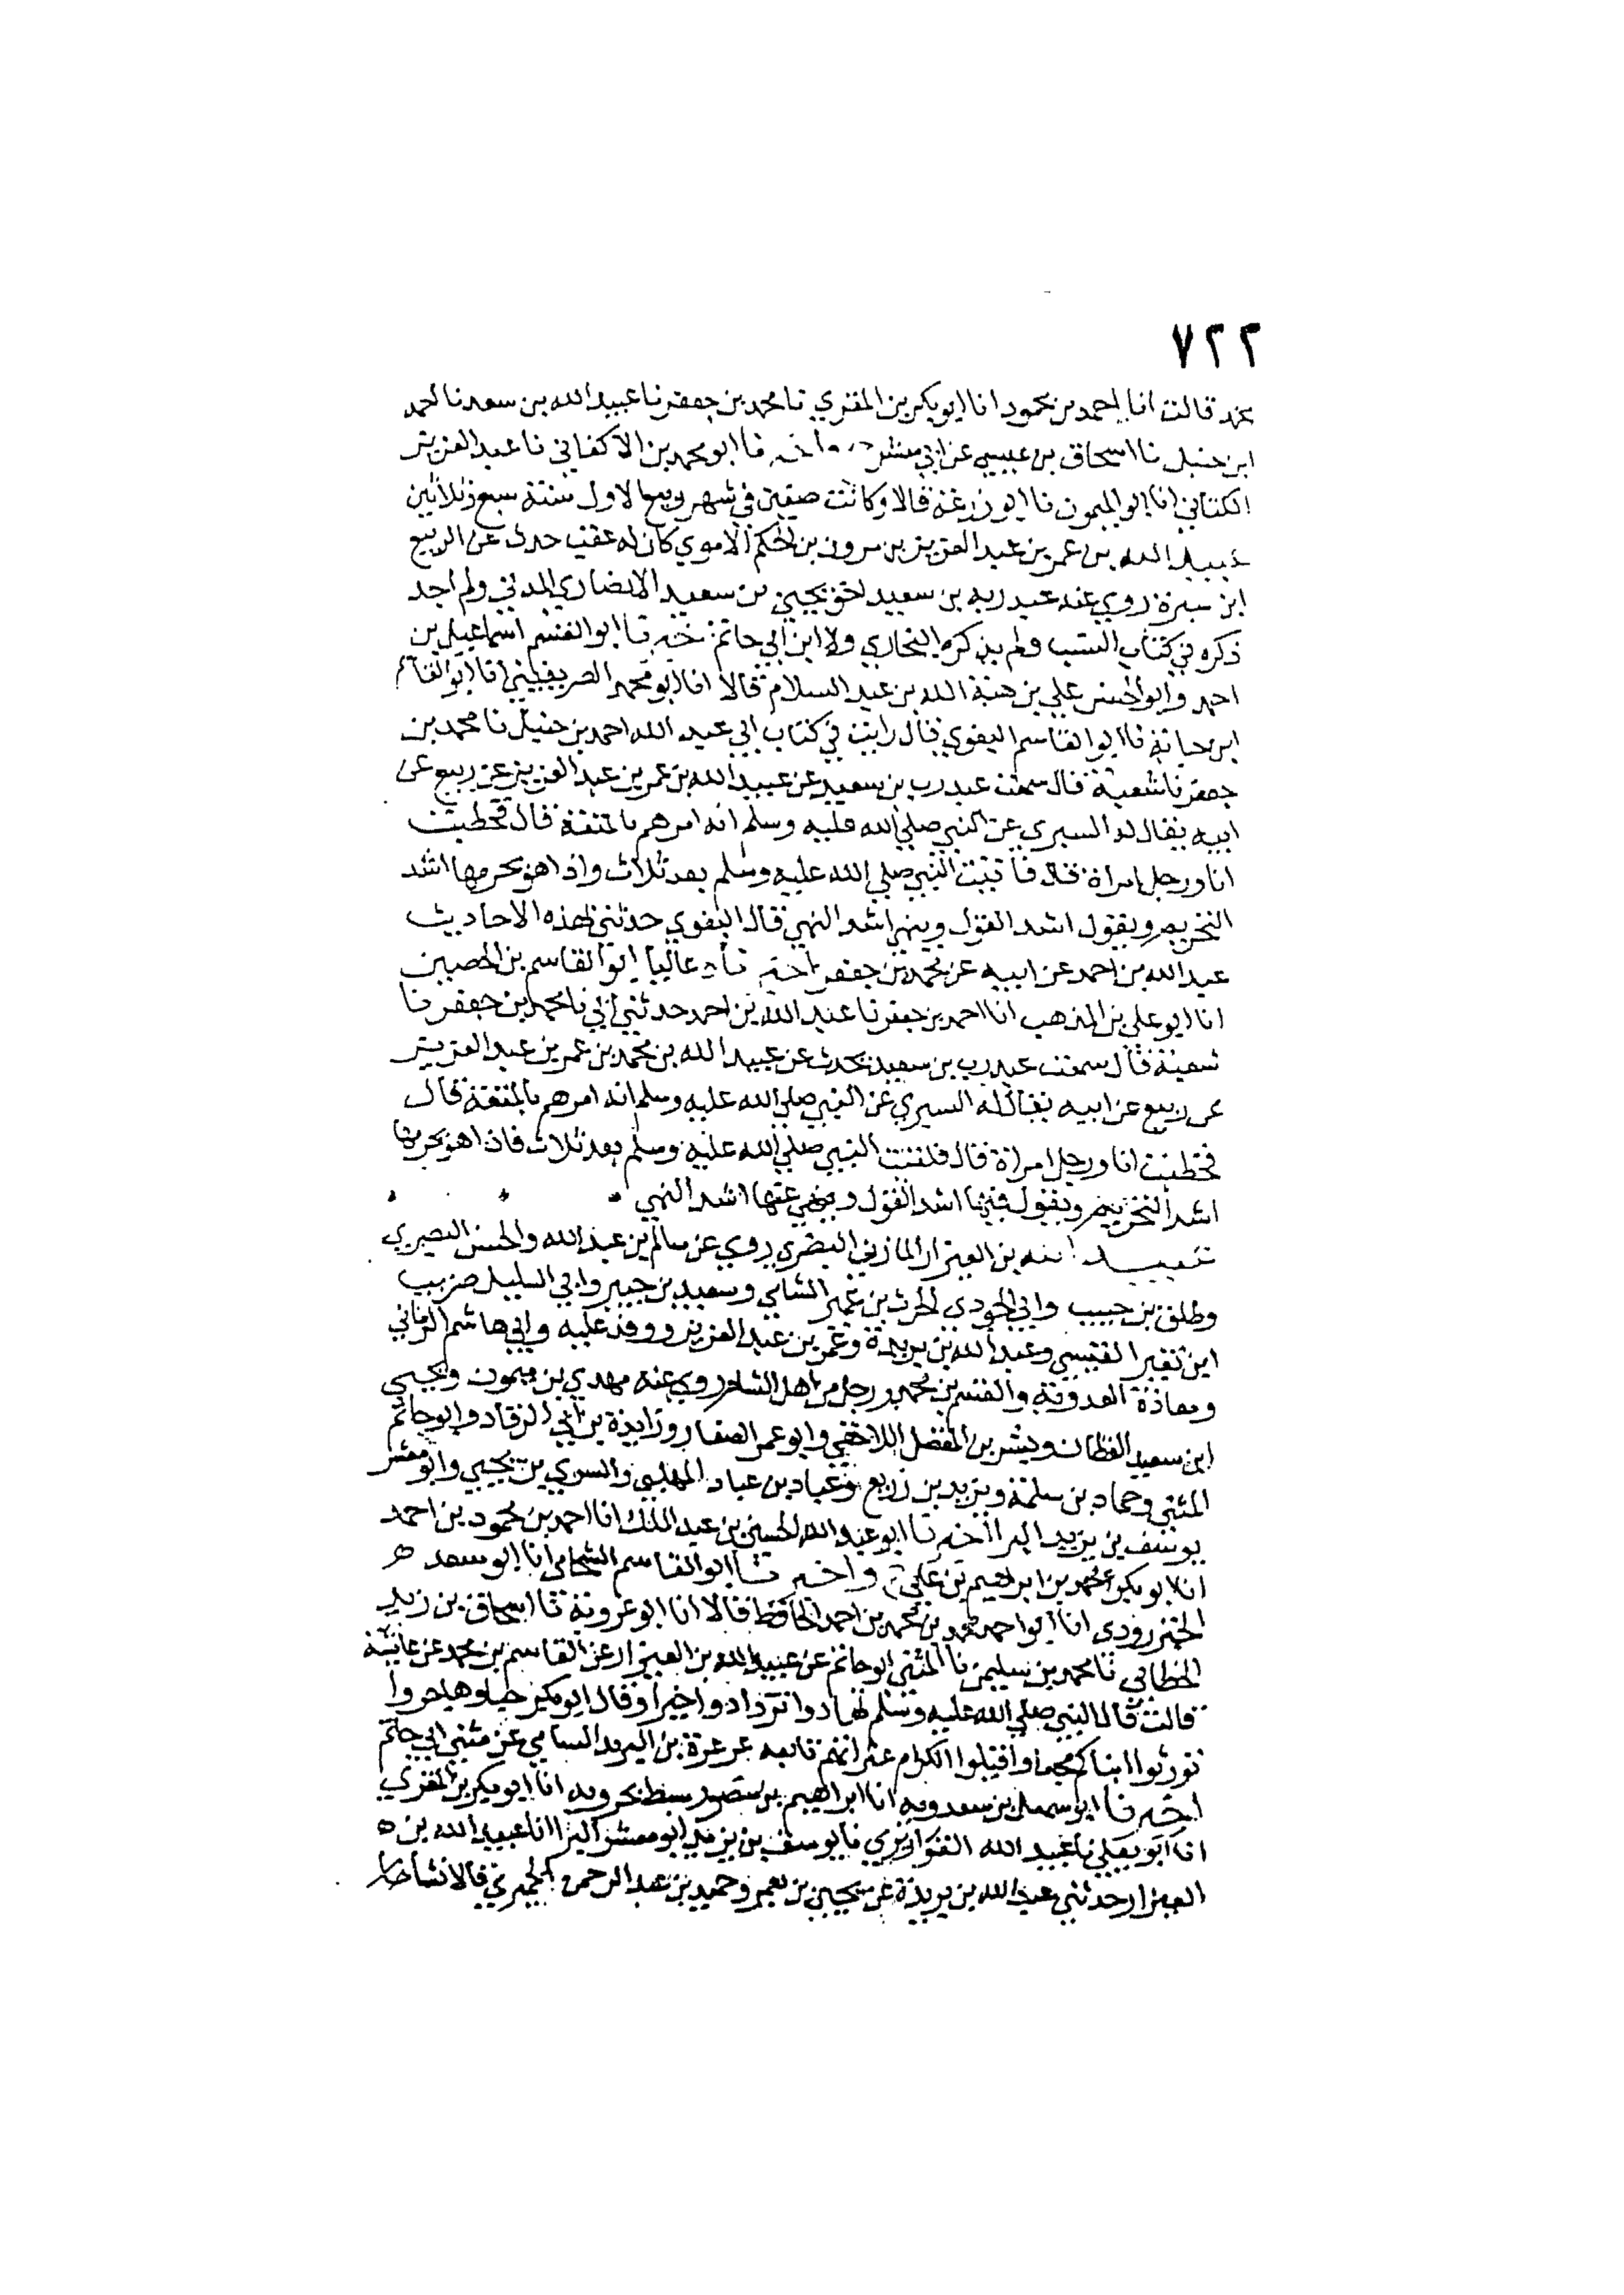 ٧٢٢
محمد قالت انا احمد بن محمود انا ابو بكر بن المقري نا محمد بن جعفر نا عبيد الله بن سعد نا احمد
ابن حنبل نا اسحاق بن عيسى عن ابي معشر نا ابو محمد بن الاكفاني نا عبد العزيز
الكتاني انا ابو الميمون نا ابو زرعة قالا وكانت صفين في شهر ربيع الاول سنة سبع وثلاثين
عبيد الله بن عمر بن عبد العزيز بن مرون بن الحكم الاموي كان له عقب حدث عن الربيع
ابن سبرة روي عنه عبد ربه بن سعيد اخو يحيى بن سعيد الانصاري المدني ولم اجد
ذكره في كتاب النسب ولم يذكره البخاري ولا ابن ابي حاتم اخبرنا ابو القسم اسماعيل بن
احمد وابو الحسن علي بن هبة الله بن عبد السلام قالا انا ابو محمد الصريفيني انا ابو القاسم
ابن حبابة نا ابو القاسم البغوي قال رايت في كتاب ابي عبد الله احمد بن حنبل نا محمد بن
جعفر نا شعبة قال سمعت عبد رب بن سعيد عن عبيد الله بن عمر بن عبد العزيز عن ربيع عن
ابيه يقال له السبري عن النبي صلي الله عليه وسلم انه امرهم بالمتعة قال فخطبت
انا ورجل امراة قال فاتيت النبي صلي الله عليه وسلم بعد ثلاث واذا هو يحرمها اشد
التحريم ويقول اشد القول وينهي اشد النهي قال البغوي حدثني بهذه الاحاديث
عبد الله بن احمد عن ابيه عن محمد بن جعفر اخبرناه عاليا ابو القاسم بن الحصين
انا ابو علي بن المذهب انا احمد بن جعفر نا عبد الله بن احمد حدثني ابي نا محمد بن جعفر نا
شعبة قال سمعت عبد رب بن سعيد يحدث عن عبيد الله بن محمد بن عمر بن عبد العزيز
عن ربيع عن ابيه يقال له السبري عن النبي صلي الله عليه وسلم انه امرهم بالمتعة قال
فخطبت انا ورجل امراة قال فلقيت النبي صلي الله عليه وسلم بعد ثلاث فاذا هو يحرمها
اشد التحريم ويقول فيها اشد القول وينهي عنها اشد النهي
عبيد الله بن العيزار المازني البصري روي عن سالم بن عبد الله والحسن البصري
وطلق بن حبيب وابي الجودي الحرث بن عمير الشامي وسعيد بن جبير وابي السليل ضريب
ابن نقير القيسي وعبد الله بن بريدة وعمر بن عبد العزيز ووفد عليه وابي هاشم الرماني
ومعاذة العدوية والقسم بن محمد ورجل من اهل الشام روي عنه مهدي بن ميمون ويحيى
ابن سعيد القطان وبشر بن المفضل اللاحقي وابو عمر الصفار وزايدة بن ابي الرقاد وابو حاتم
المثني وحماد بن سلمة ويزيد بن زريع وعباد بن عباد المهلبي والسري بن يحيى وابو معشر
يوسف بن يزيد البرا اخبرنا ابو عبد الله الحسين بن عبد الملك انا احمد بن محمود بن احمد
انا ابو بكر محمد بن ابراهيم بن علي واخبرنا ابو القاسم الشحامي انا ابو سعد
الجنزرودي انا ابو احمد محمد بن محمد بن احمد الحافظ قالا انا ابو عروبة نا اسحاق بن زيد
الخطابي نا محمد بن سليمن نا المثني ابو حاتم عن عبيد الله بن العيزار عن القاسم بن محمد عن عائشة
قالت قال النبي صلي الله عليه وسلم تهادوا تزدادوا خيرا وقال ابو بكر حبا وهاجروا
تورثوا ابناكم مجدا واقيلوا الكرام عثراتهم تابعه عرعرة بن البرند السامي عن مثني ابي حاتم
اخبرنا ابو سهل بن سعدويه انا ابراهيم بن منصور سبط بحرويه انا ابو بكر بن المقري
انا ابو يعلي نا عبيد الله القواريري نا يوسف بن يزيد ابو معشر البرا انا عبيد الله بن
العيزار حدثني عبد الله بن بريدة عن يحيى بن يعمر وحميد بن عبد الرحمن الحميري قالا